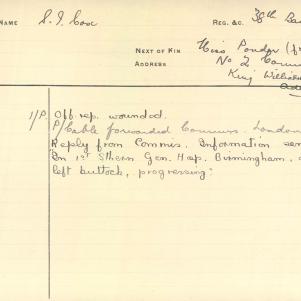 NAME S. J. Cox REG. &C. 38th Ba
NEXT OF KIN Miss Ponder (f
ADDRESS No 2
King William
1/P. Off. rep. wounded.
P/Cable forwarded Commrs. London
Reply from Commis. Information
In 1st Sthern Gen. Hsp. Birmingham,
left buttock, progressing: